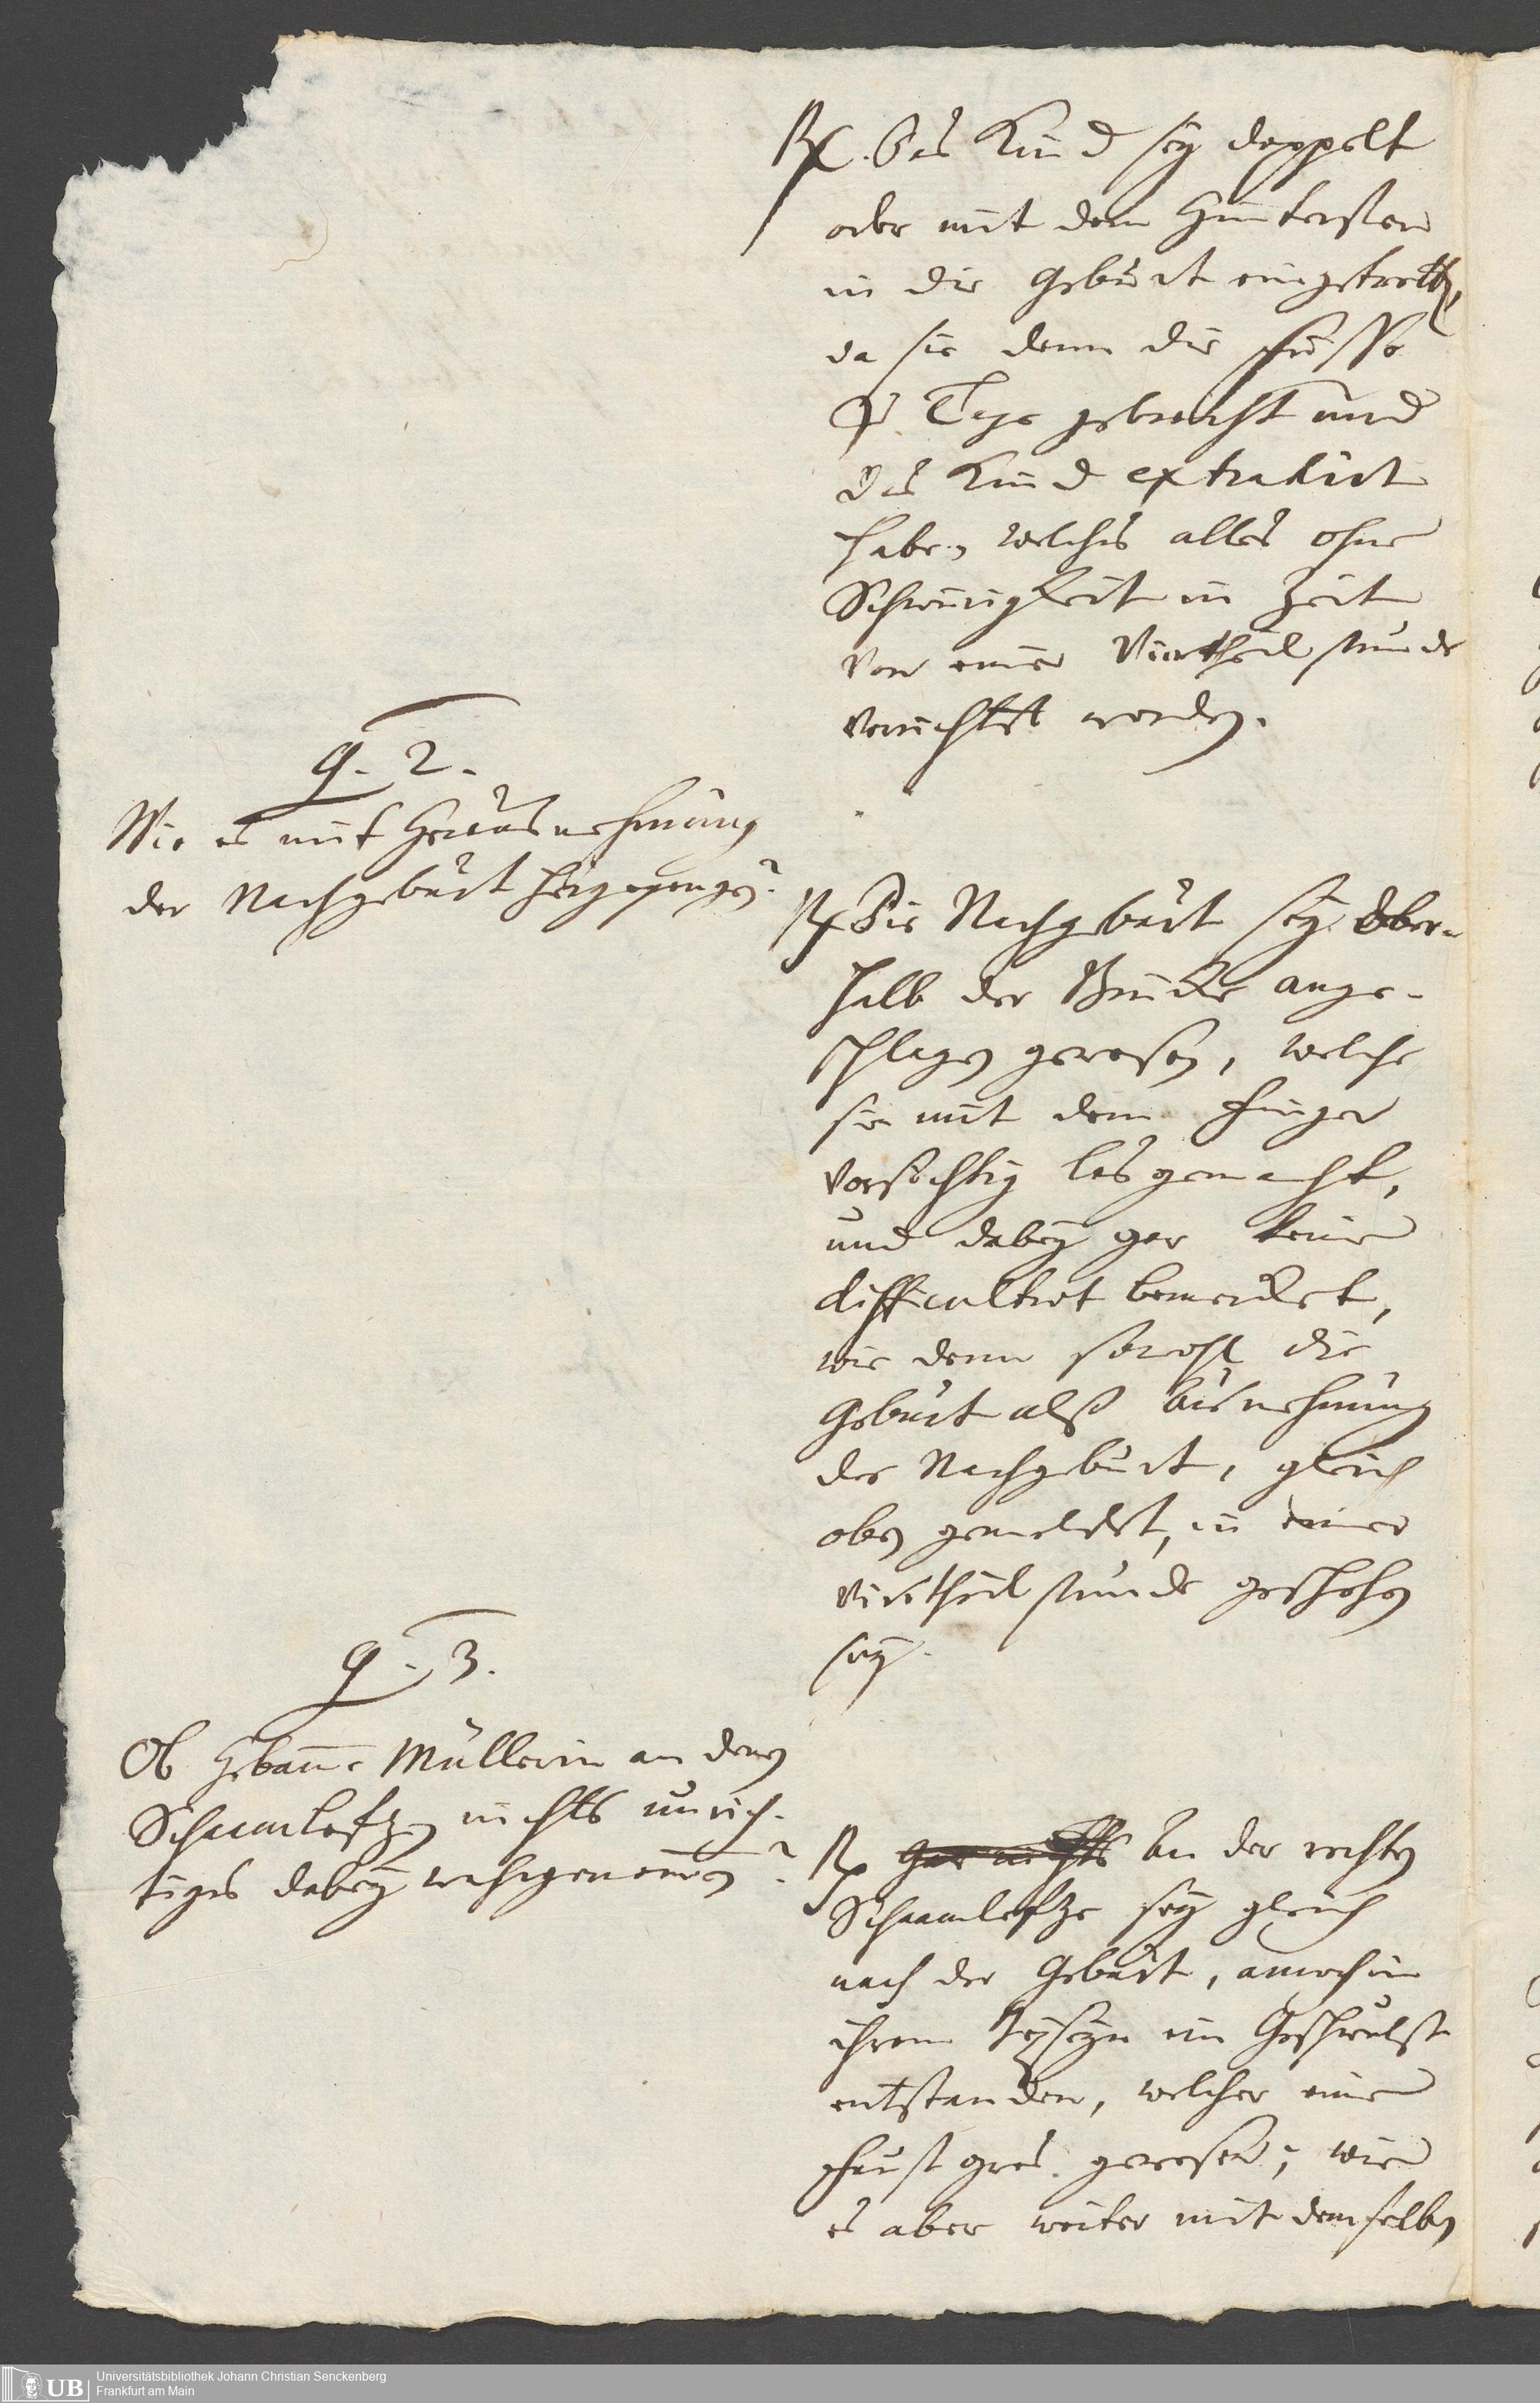 Rx. Das Kind sey doppelt
oder mit dem Hintersten
in die Geburt eingetretten,
da sie denn die Füsse
zu Tage gebracht und
das Kind extrahirt
habe, welches alles ohne
Schwierigkeit in Zeit
von einer Viertheil stunde
verrichtet worden.
q. 2.
Wie es mit Herausnehmung
der Nachgeburt hergegangen?
Rx Die Nachgeburt sey ober-
halb der Brücke ange-
schlagen gewesen, welche
sie mit dem Finger
vorsichtig losgemacht,
und dabey gar keine
difficultet bemercket,
wie denn sowohl die
Geburt alß ausnehmung
der Nachgeburt, gleich
oben gemeldet, in einer
Viertheil stunde geschehen
sey.
q. 3.
Ob Hebamme Müllerin an denen
Schaamlefzen nichts unrich-
tiges dabey wahrgenommen?
Rx gar nichts An der rechten
Schaamlefze sey gleich
nach der Geburt, annoch in
ihrem Beyseyn ein Geschwulst
entstanden, welcher einer
Faust gros gewesen; wie
es aber weiter mit demselben
UB
Universitätsbibliothek Johann Christian Senckenberg
Frankfurt am Main